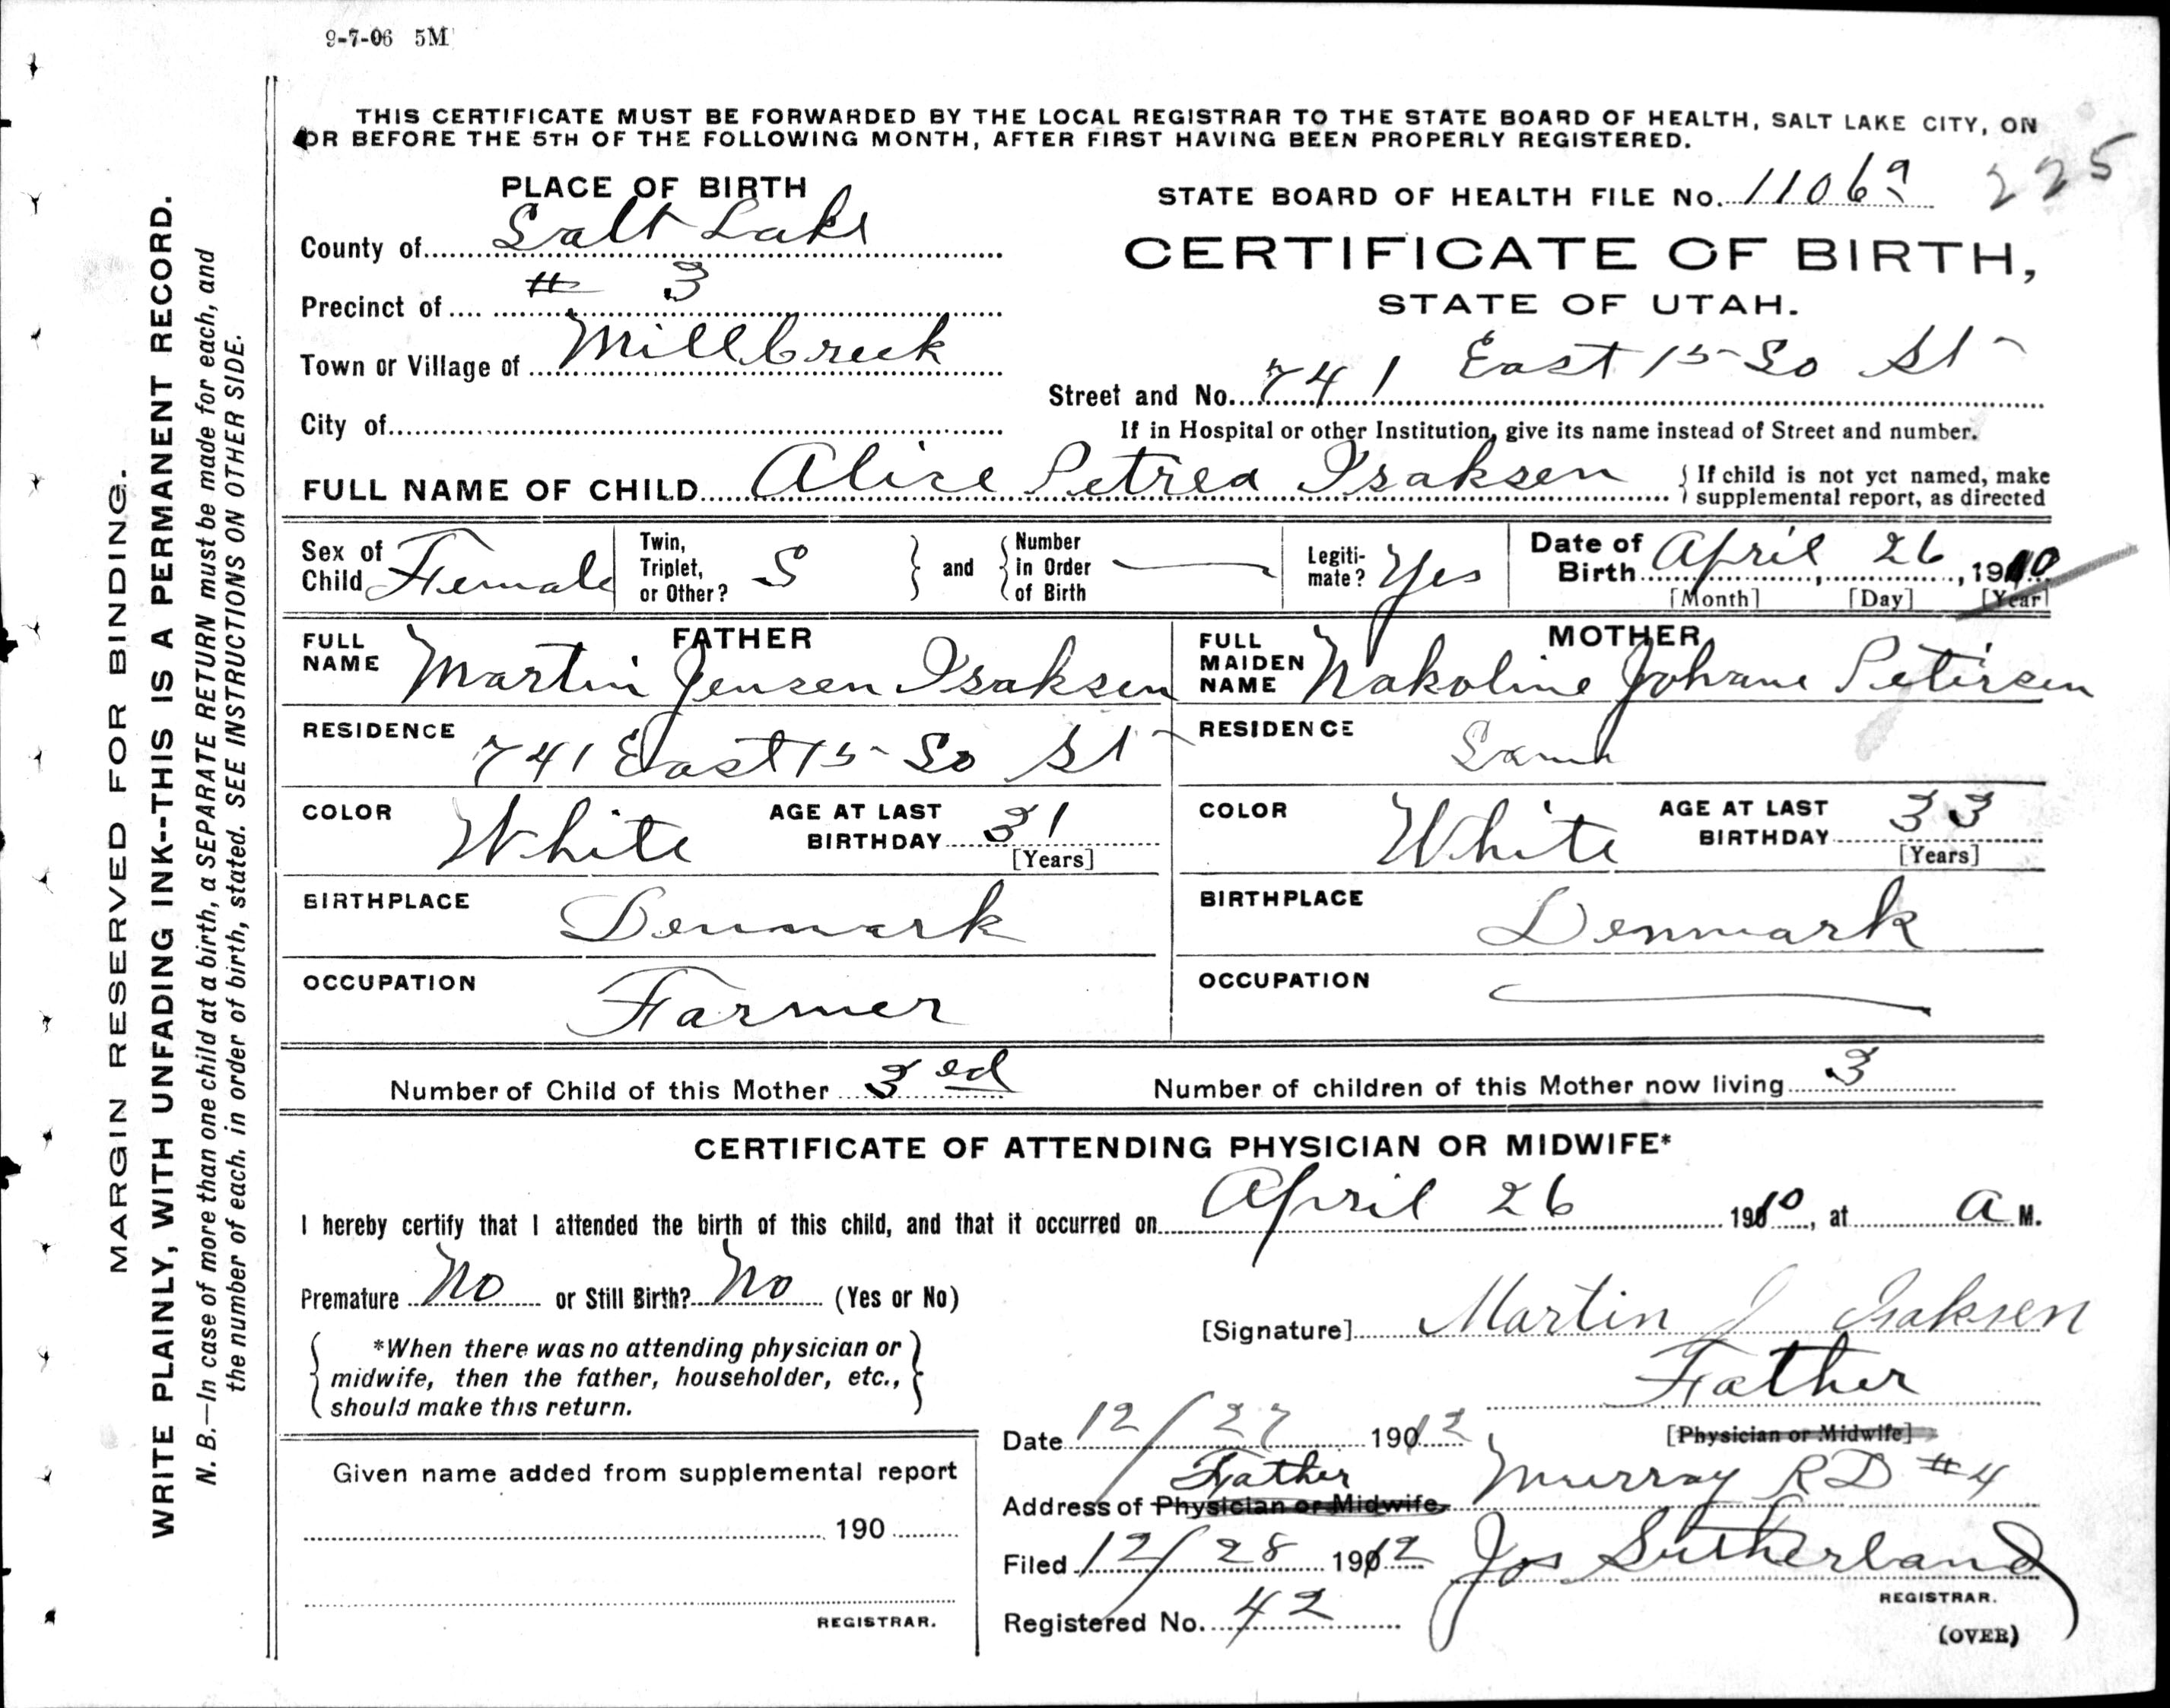 9-7-06 5M
THIS CERTIFICATE MUST BE FORWARDED BY THE LOCAL REGISTRAR TO THE STATE BOARD OF HEALTH, SALT LAKE CITY, ON
OR BEFORE THE 5TH OF THE FOLLOWING MONTH, AFTER FIRST HAVING BEEN PROPERLY REGISTERED.
225
MARGIN RESERVED FOR BINDING.
WRITE PLAINLY, WITH UNFADING INK--THIS IS A PERMANENT RECORD.
N. B.—In case of more than one child at a birth, a SEPARATE RETURN must be made for each, and
the number of each, in order of birth, stated. SEE INSTRUCTIONS ON OTHER SIDE.
PLACE OF BIRTH
County of Salt Lake
Precinct of # 3
Town or Village of Millcreek
City of
STATE BOARD OF HEALTH FILE No. 11069
CERTIFICATE OF BIRTH,
STATE OF UTAH.
Street and No. 741 East 15 So St
If in Hospital or other Institution, give its name instead of Street and number.
FULL NAME OF CHILD Alice Petrea Isaksen
If child is not yet named, make
supplemental report, as directed
Sex of Child Female
Twin, Triplet, or Other? S
and
Number in Order of Birth —
Legitimate? Yes
Date of Birth April 26, 1910
[Month] [Day] [Year]
FATHER
FULL NAME Martin Jensen Isaksen
RESIDENCE 741 East 15 So St
COLOR White
AGE AT LAST BIRTHDAY 31
[Years]
BIRTHPLACE Denmark
OCCUPATION Farmer
MOTHER
FULL MAIDEN NAME Nakoline Johane Petersen
RESIDENCE Same
COLOR White
AGE AT LAST BIRTHDAY 33
[Years]
BIRTHPLACE Denmark
OCCUPATION —
Number of Child of this Mother 3ed
Number of children of this Mother now living 3
CERTIFICATE OF ATTENDING PHYSICIAN OR MIDWIFE*
I hereby certify that I attended the birth of this child, and that it occurred on April 26 1910, at A M.
Premature No or Still Birth? No (Yes or No)
*When there was no attending physician or
midwife, then the father, householder, etc.,
should make this return.
[Signature] Martin J Isaksen
Father
[Physician or Midwife]
Date 12/27 1912
Father
Address of Physician or Midwife Murray RD #4
Filed 12/28 1912 Jos Sutherland
REGISTRAR.
Registered No. 42
(OVER)
Given name added from supplemental report
190
REGISTRAR.